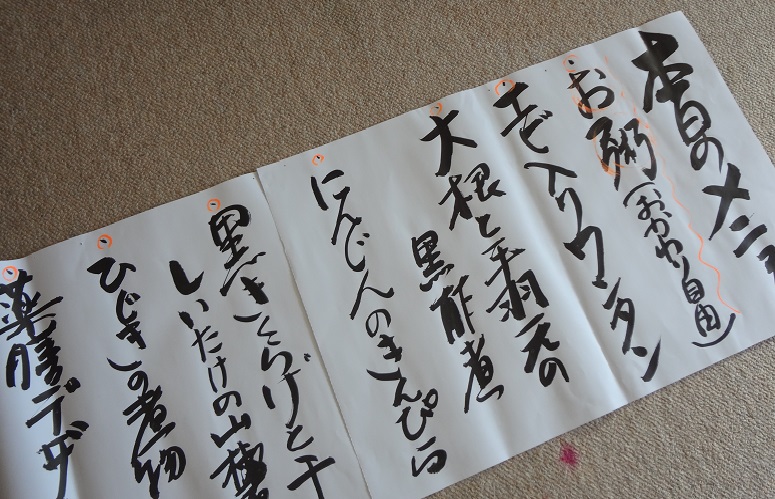 本日のメニ
お粥(おかわり自由)
エビ入りワンタン
大根と手羽元の
黒酢煮
にんじんのきんぴら
黒きくらげと干
しいたけの山椒
ひじきの煮物
薬膳デザ